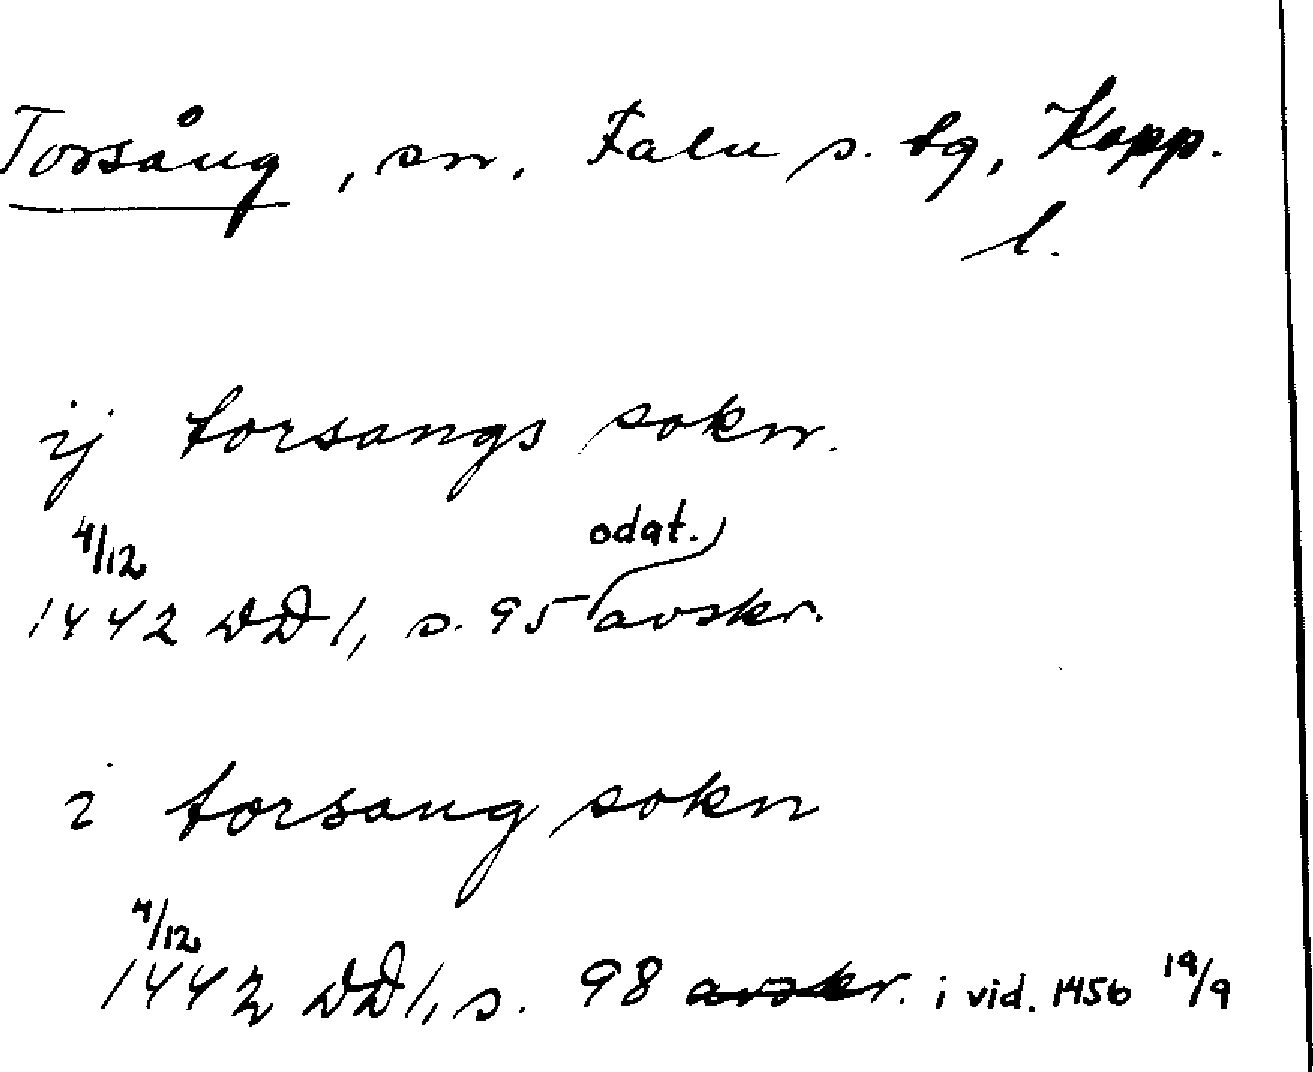 Torsång, sn, Falu s. tg, Kopp.
l.
ij torsangs sokn.
4/12
odat.
1442 DD 1, s. 95 avskr.
i torsang sokn
4/12
1442 DD 1, s. 98 avskr. i vid. 1456 19/9